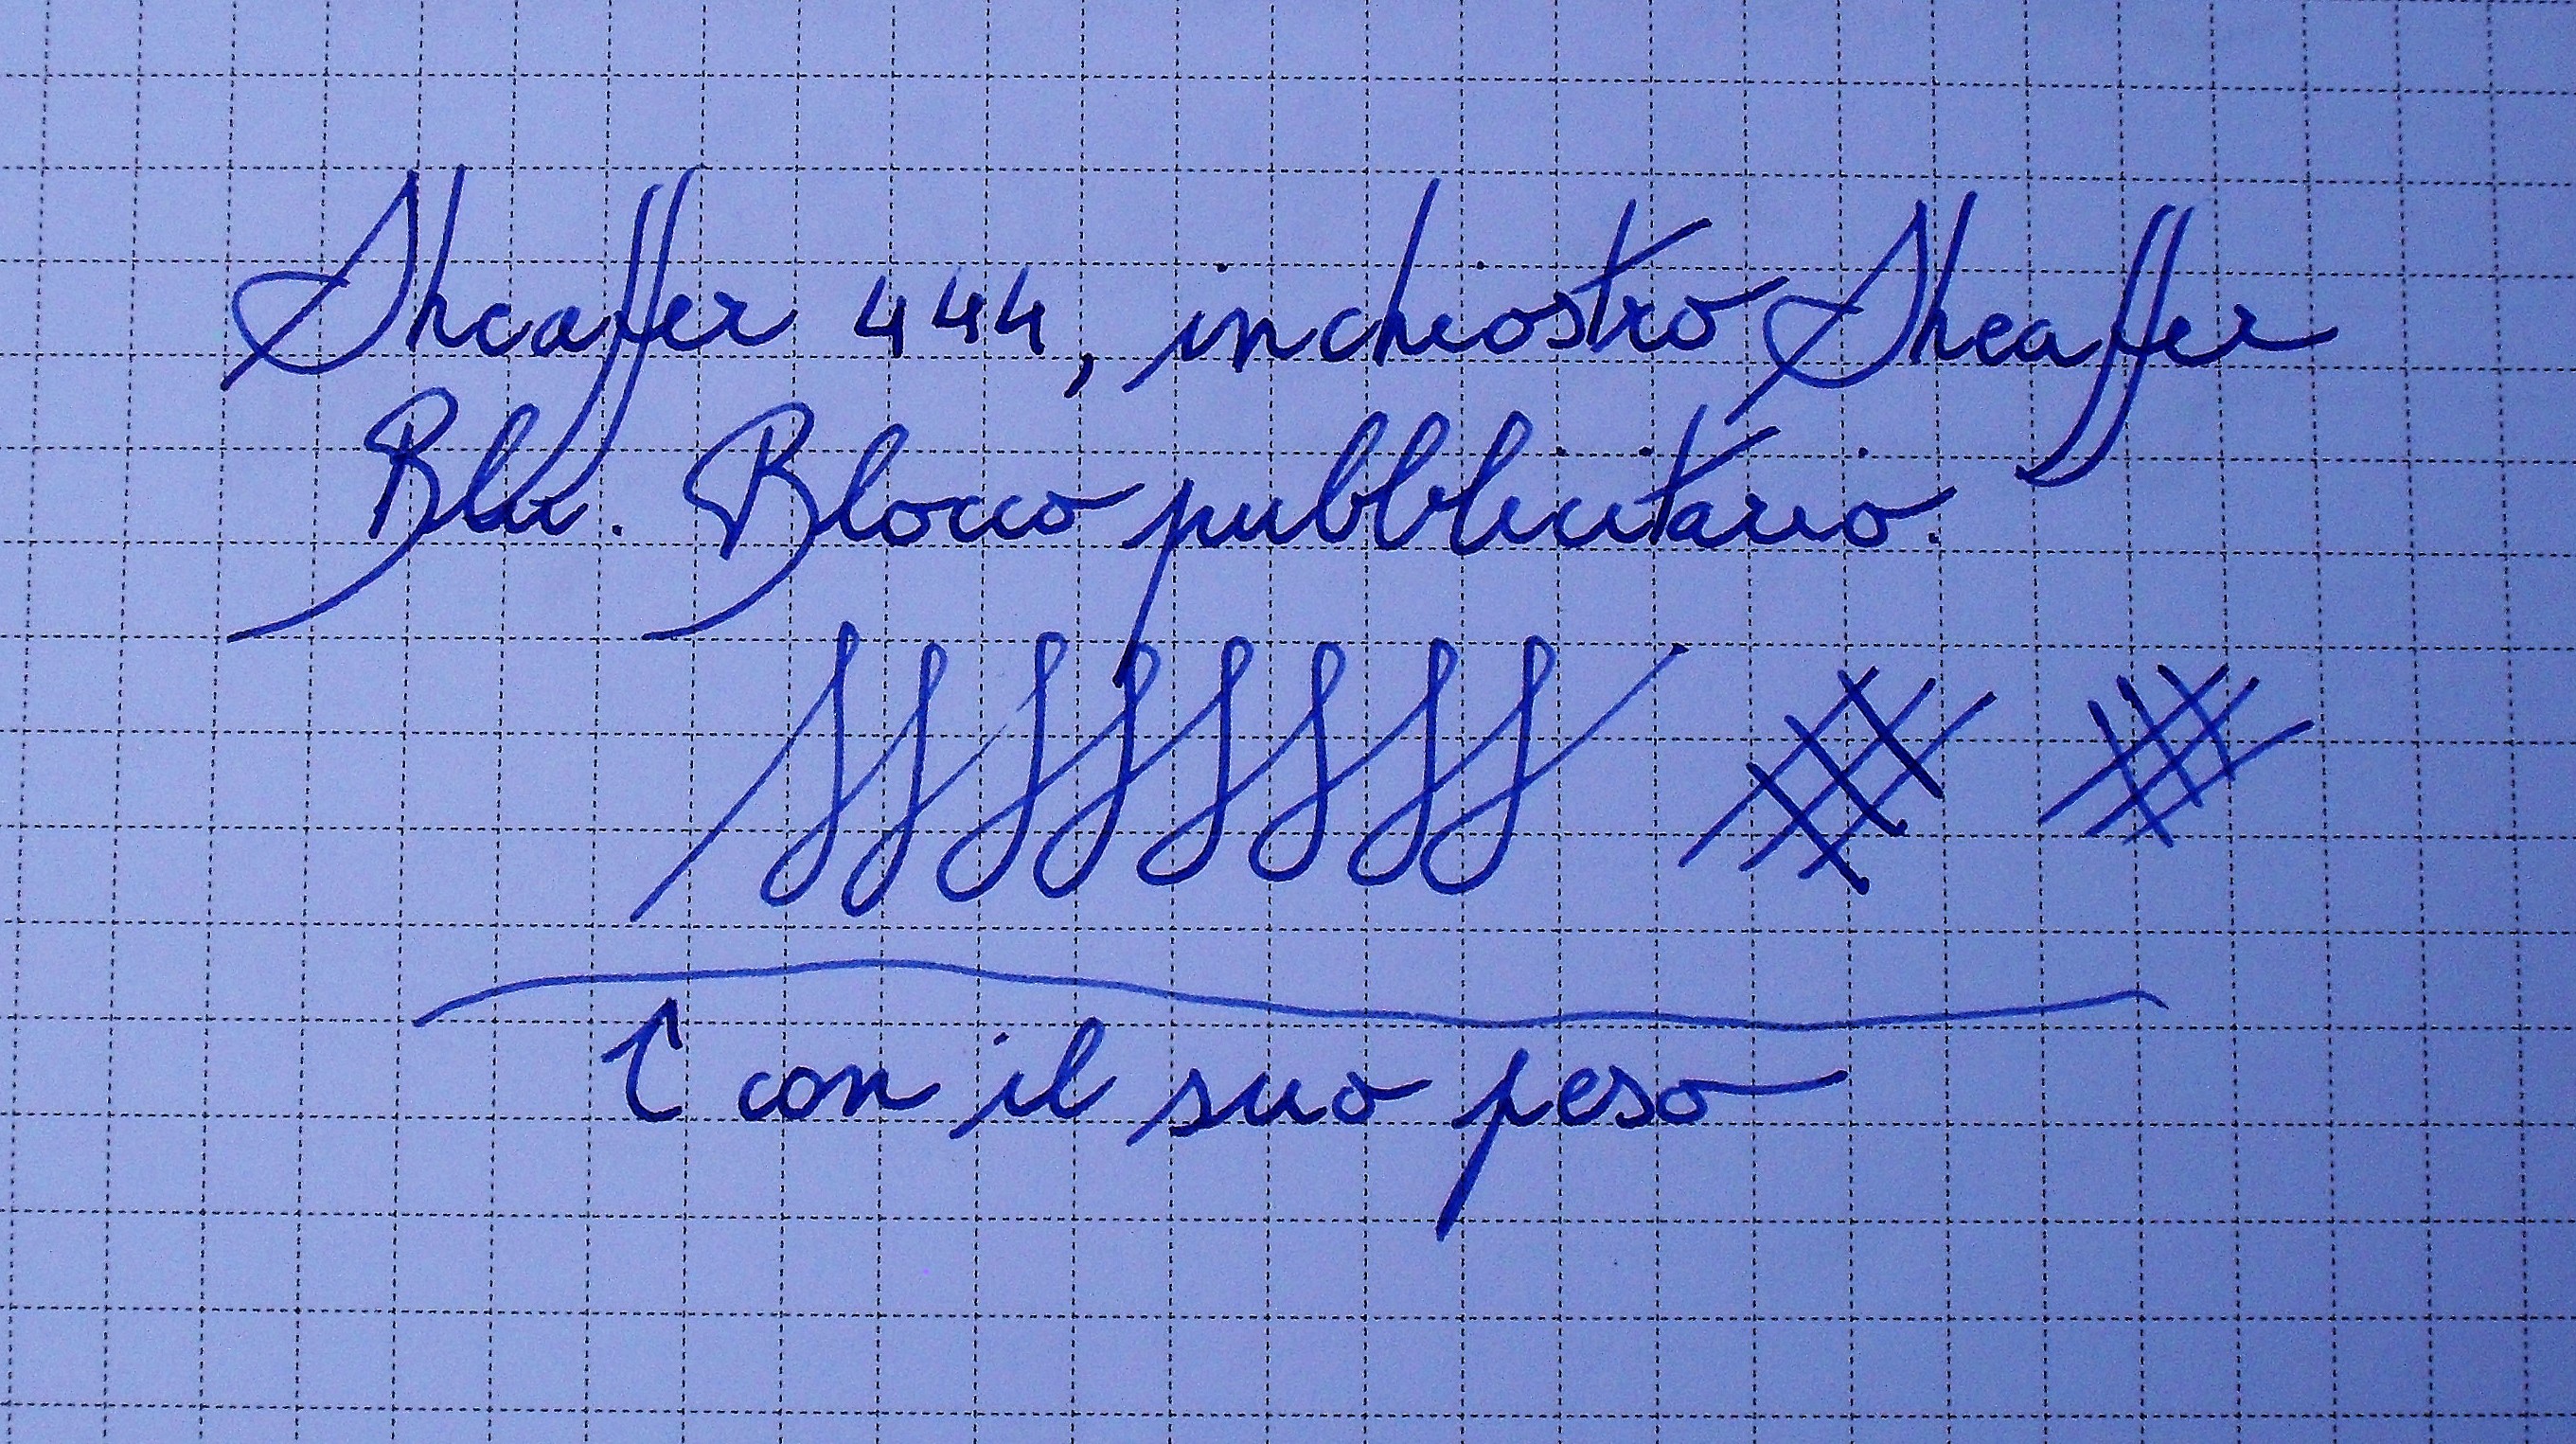 Sheaffer 444, inchiostro Sheaffer
Blu. Blocco pubblicitario.
↑ con il suo peso